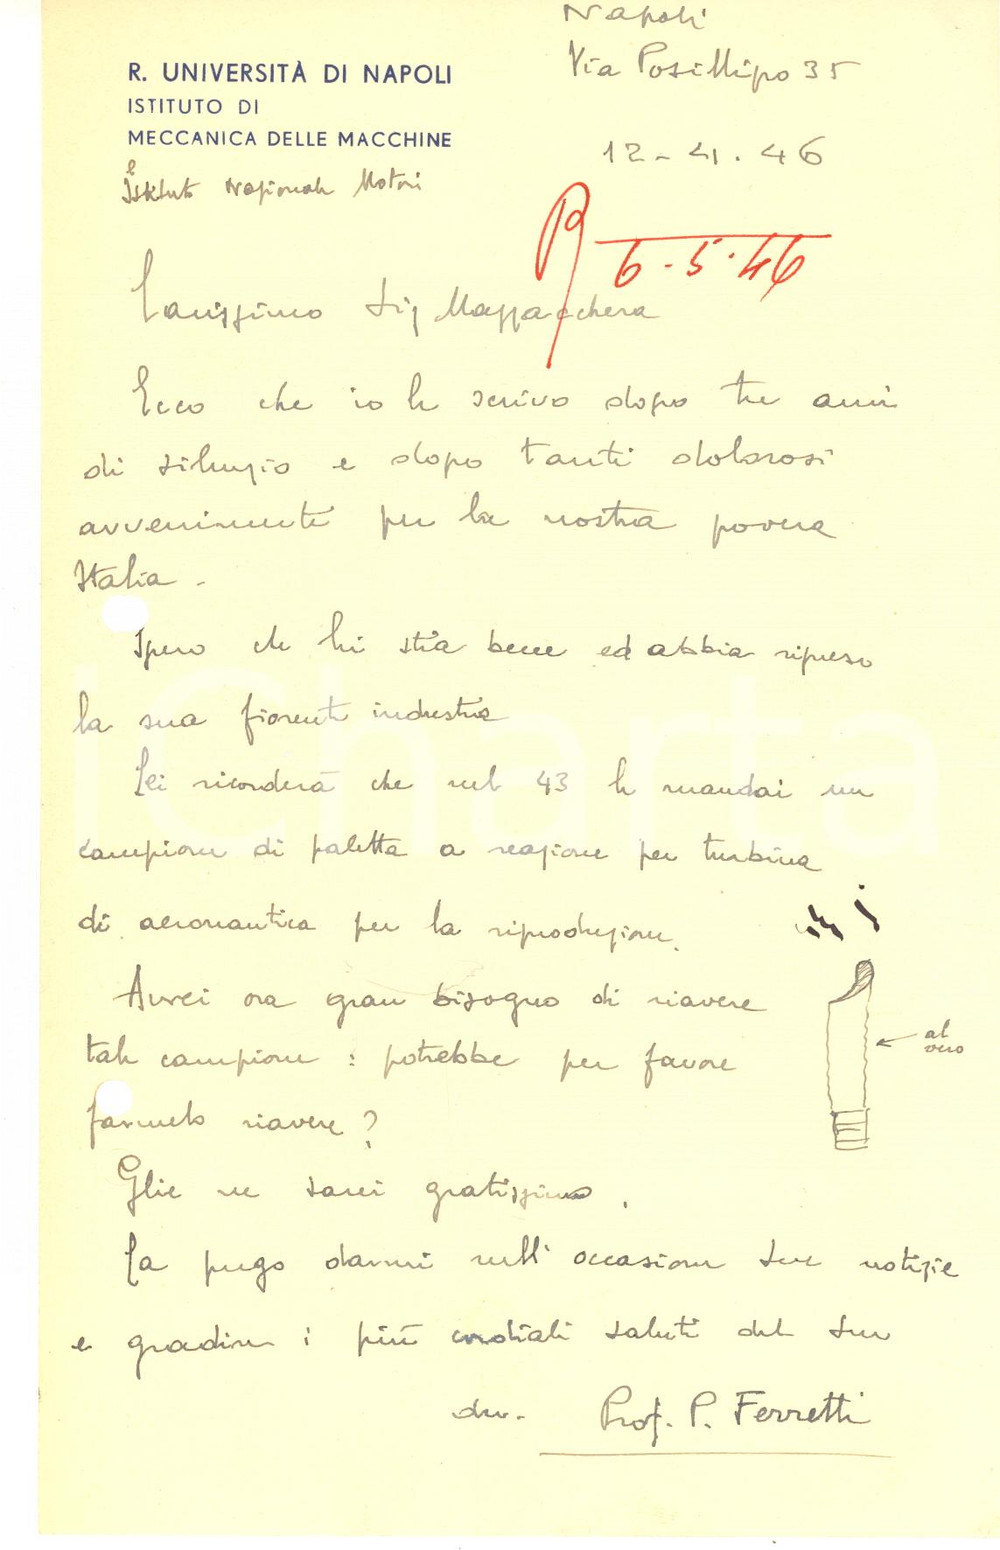 Napoli
Via Posillipo 35
R. UNIVERSITÀ DI NAPOLI
ISTITUTO DI
MECCANICA DELLE MACCHINE
e
Istituto Nazionale Motori
12-4.46
R 6.5.46
Carissimo Sig Mazzacchera
Ecco che io le scrivo dopo tre anni
di silenzio e dopo tanti dolorosi
avvenimenti per la nostra povera
Italia -
Spero che lei stia bene ed abbia ripreso
la sua fiorente industria
Lei ricorderà che nel 43 le mandai un
campione di paletta a reazione per turbina
di aeronautica per la riproduzione.
Avrei ora gran bisogno di riavere
tale campione : potrebbe per favore
farmelo riavere ?
al
vero
Glie ne sarei gratissimo.
La prego darmi nell'occasione sue notizie
e gradire i più cordiali saluti dal suo
dev. Prof. P. Ferretti
iCharta